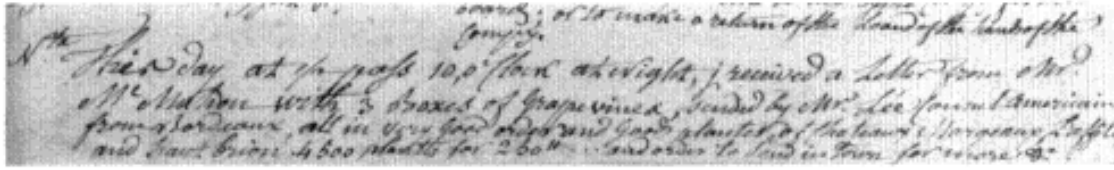 board, or to make a return of the board of the hands of the
Compy.
Nth This day at ½ pass 10 o'Clock at Night, j received a Letter from Mr.
McMahon with 3 Boxes of Grapevines, sended by Mr. Lée Consul Americain
from Bordeaux, all in very good order and good plantes, of Chateaux Margeaux, Lafitte
and haut brion 4500 plantes for 230tt and order to send in town for more &c.